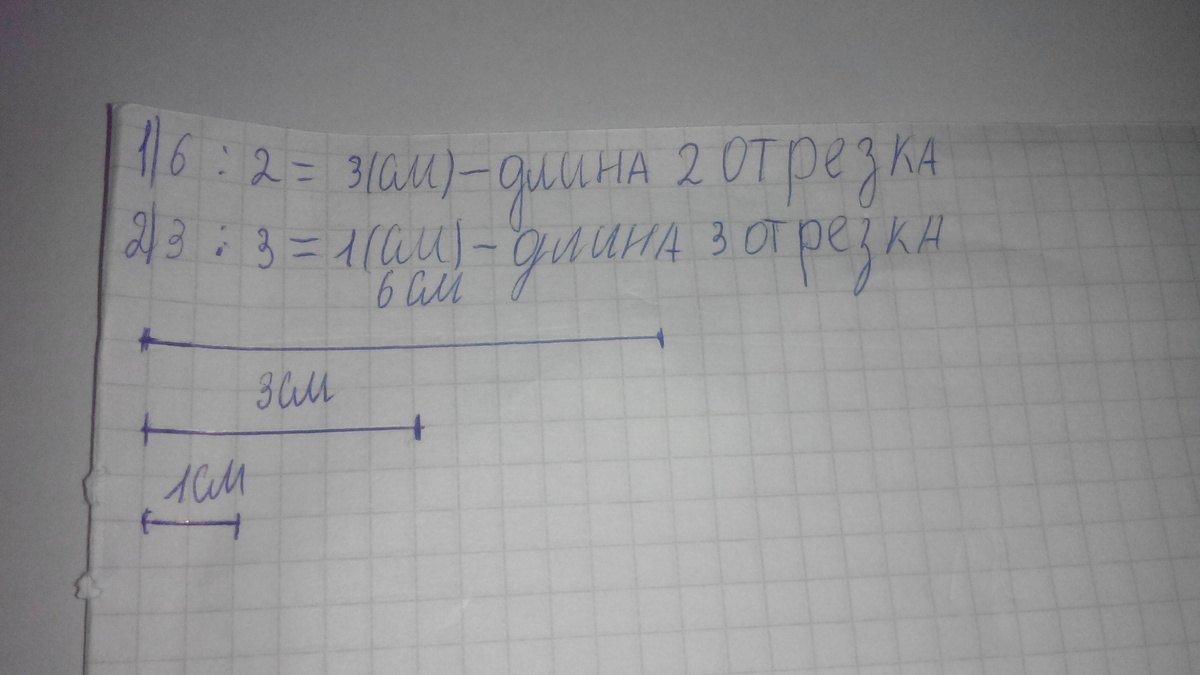 1) 6 : 2 = 3(см) - длина 2 отрезка
2) 3 : 3 = 1(см) - длина 3 отрезка
6 см
3 см
1 см